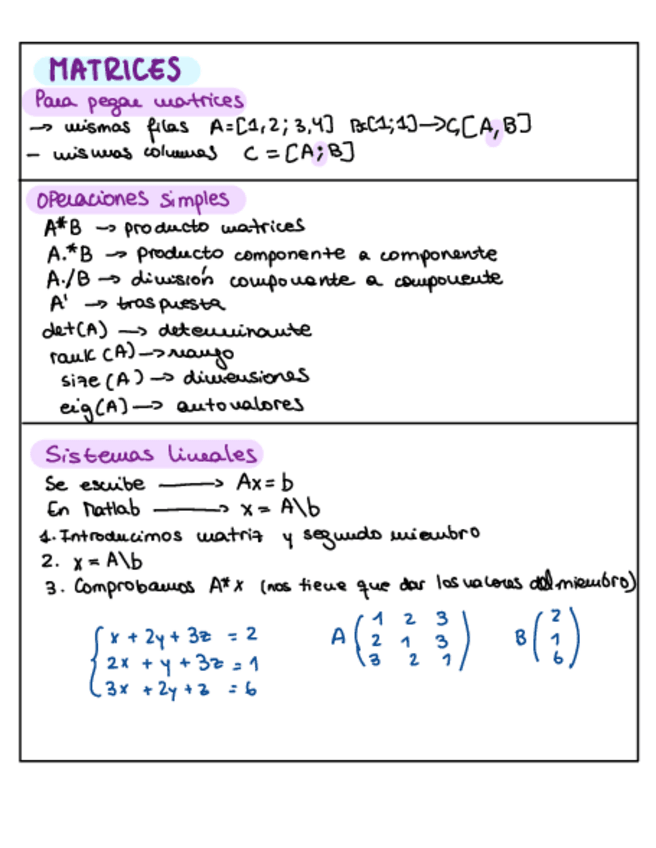 MATRICES
Para pegar matrices
→ mismas filas A=[1,2; 3,4] B=[1;1]→C=[A,B]
- mismas columnas C = [A;B]
Operaciones simples
A*B → producto matrices
A.*B → producto componente a componente
A./B → división componente a componente
A' → traspuesta
det(A) → determinante
rank(A) → rango
size(A) → dimensiones
eig(A) → autovalores
Sistemas lineales
Se escribe → Ax=b
En Matlab → x = A\b
1. Introducimos matriz y segundo miembro
2. x = A\b
3. Comprobamos A*x (nos tiene que dar los valores del miembro)
x + 2y + 3z = 2
2x + y + 3z = 1
3x + 2y + z = 6
A
1 2 3
2 1 3
3 2 1
B
2
1
6